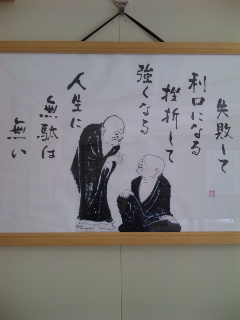 失敗して
利口になる
挫折して
強くなる
人生に
無駄は
無い